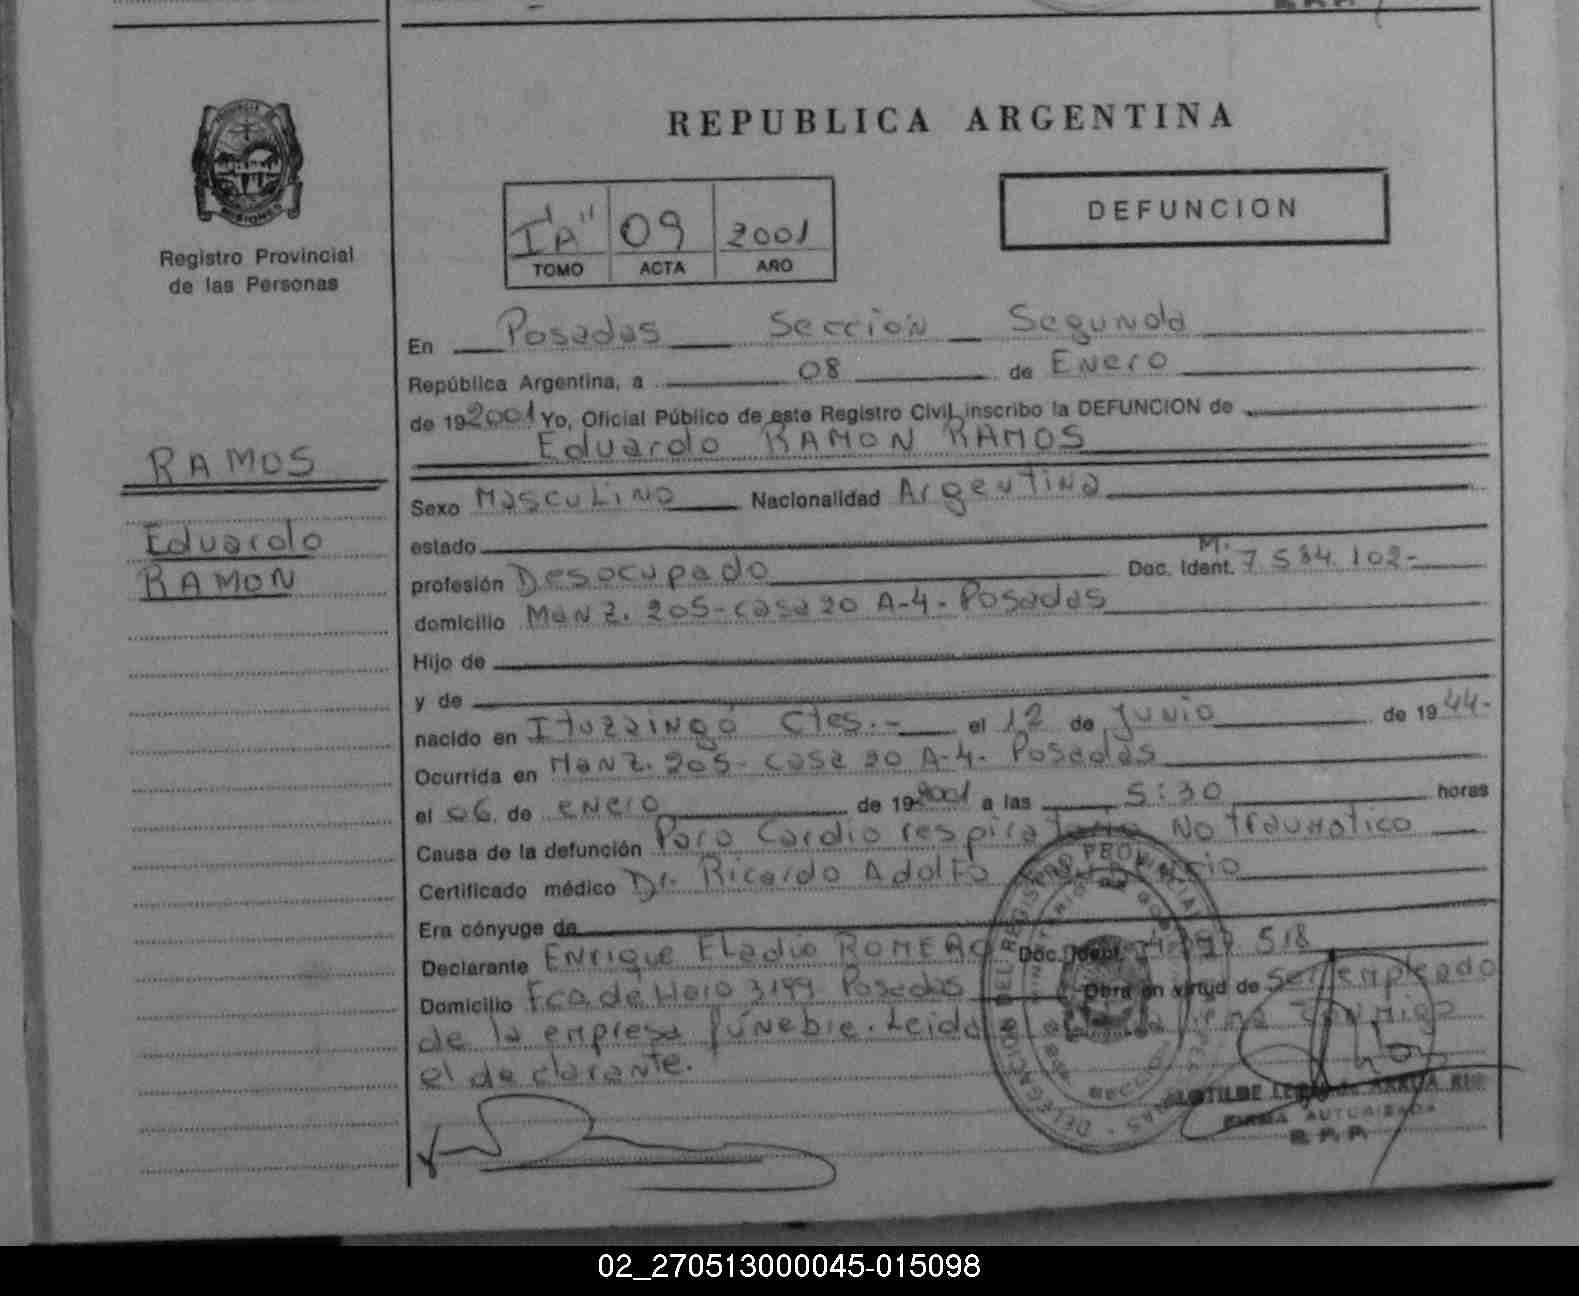 REPUBLICA ARGENTINA
Registro Provincial
de las Personas
I "A" 09 2001
TOMO ACTA AÑO
DEFUNCION
En Posadas Sección Segunda
República Argentina, a 08 de Enero
de 19 2001 Yo, Oficial Público de este Registro Civil inscribo la DEFUNCION de
Eduardo RAMON RAMOS
RAMOS
Eduardo
RAMON
Sexo Masculino Nacionalidad Argentina
estado
profesión Desocupado Doc. Ident. M. 7.534.102-
domicilio Manz. 205-casa 20 A-4- Posadas
Hijo de
y de
nacido en Ituzaingó Ctes.- el 12 de Junio de 1944-
Ocurrida en Manz. 205- casa 20 A-4- Posadas
el 06 de enero de 19 2001 a las 5:30 horas
Causa de la defunción Paro Cardio respiratorio No traumatico
Certificado médico Dr. Ricardo Adolfo
Era cónyuge de
Declarante Enrique Eladio ROMERO Doc. Ident. 518
Domicilio Fco. de Haro 3199 Posadas Obra en virtud de Ser empleado
de la empresa fúnebre. Leida el acta firma conmigo
el declarante.
DELEGACION DEL REGISTRO PROVINCIAL
FIRMA AUTORIZADA
R.P.P.
02_270513000045-015098